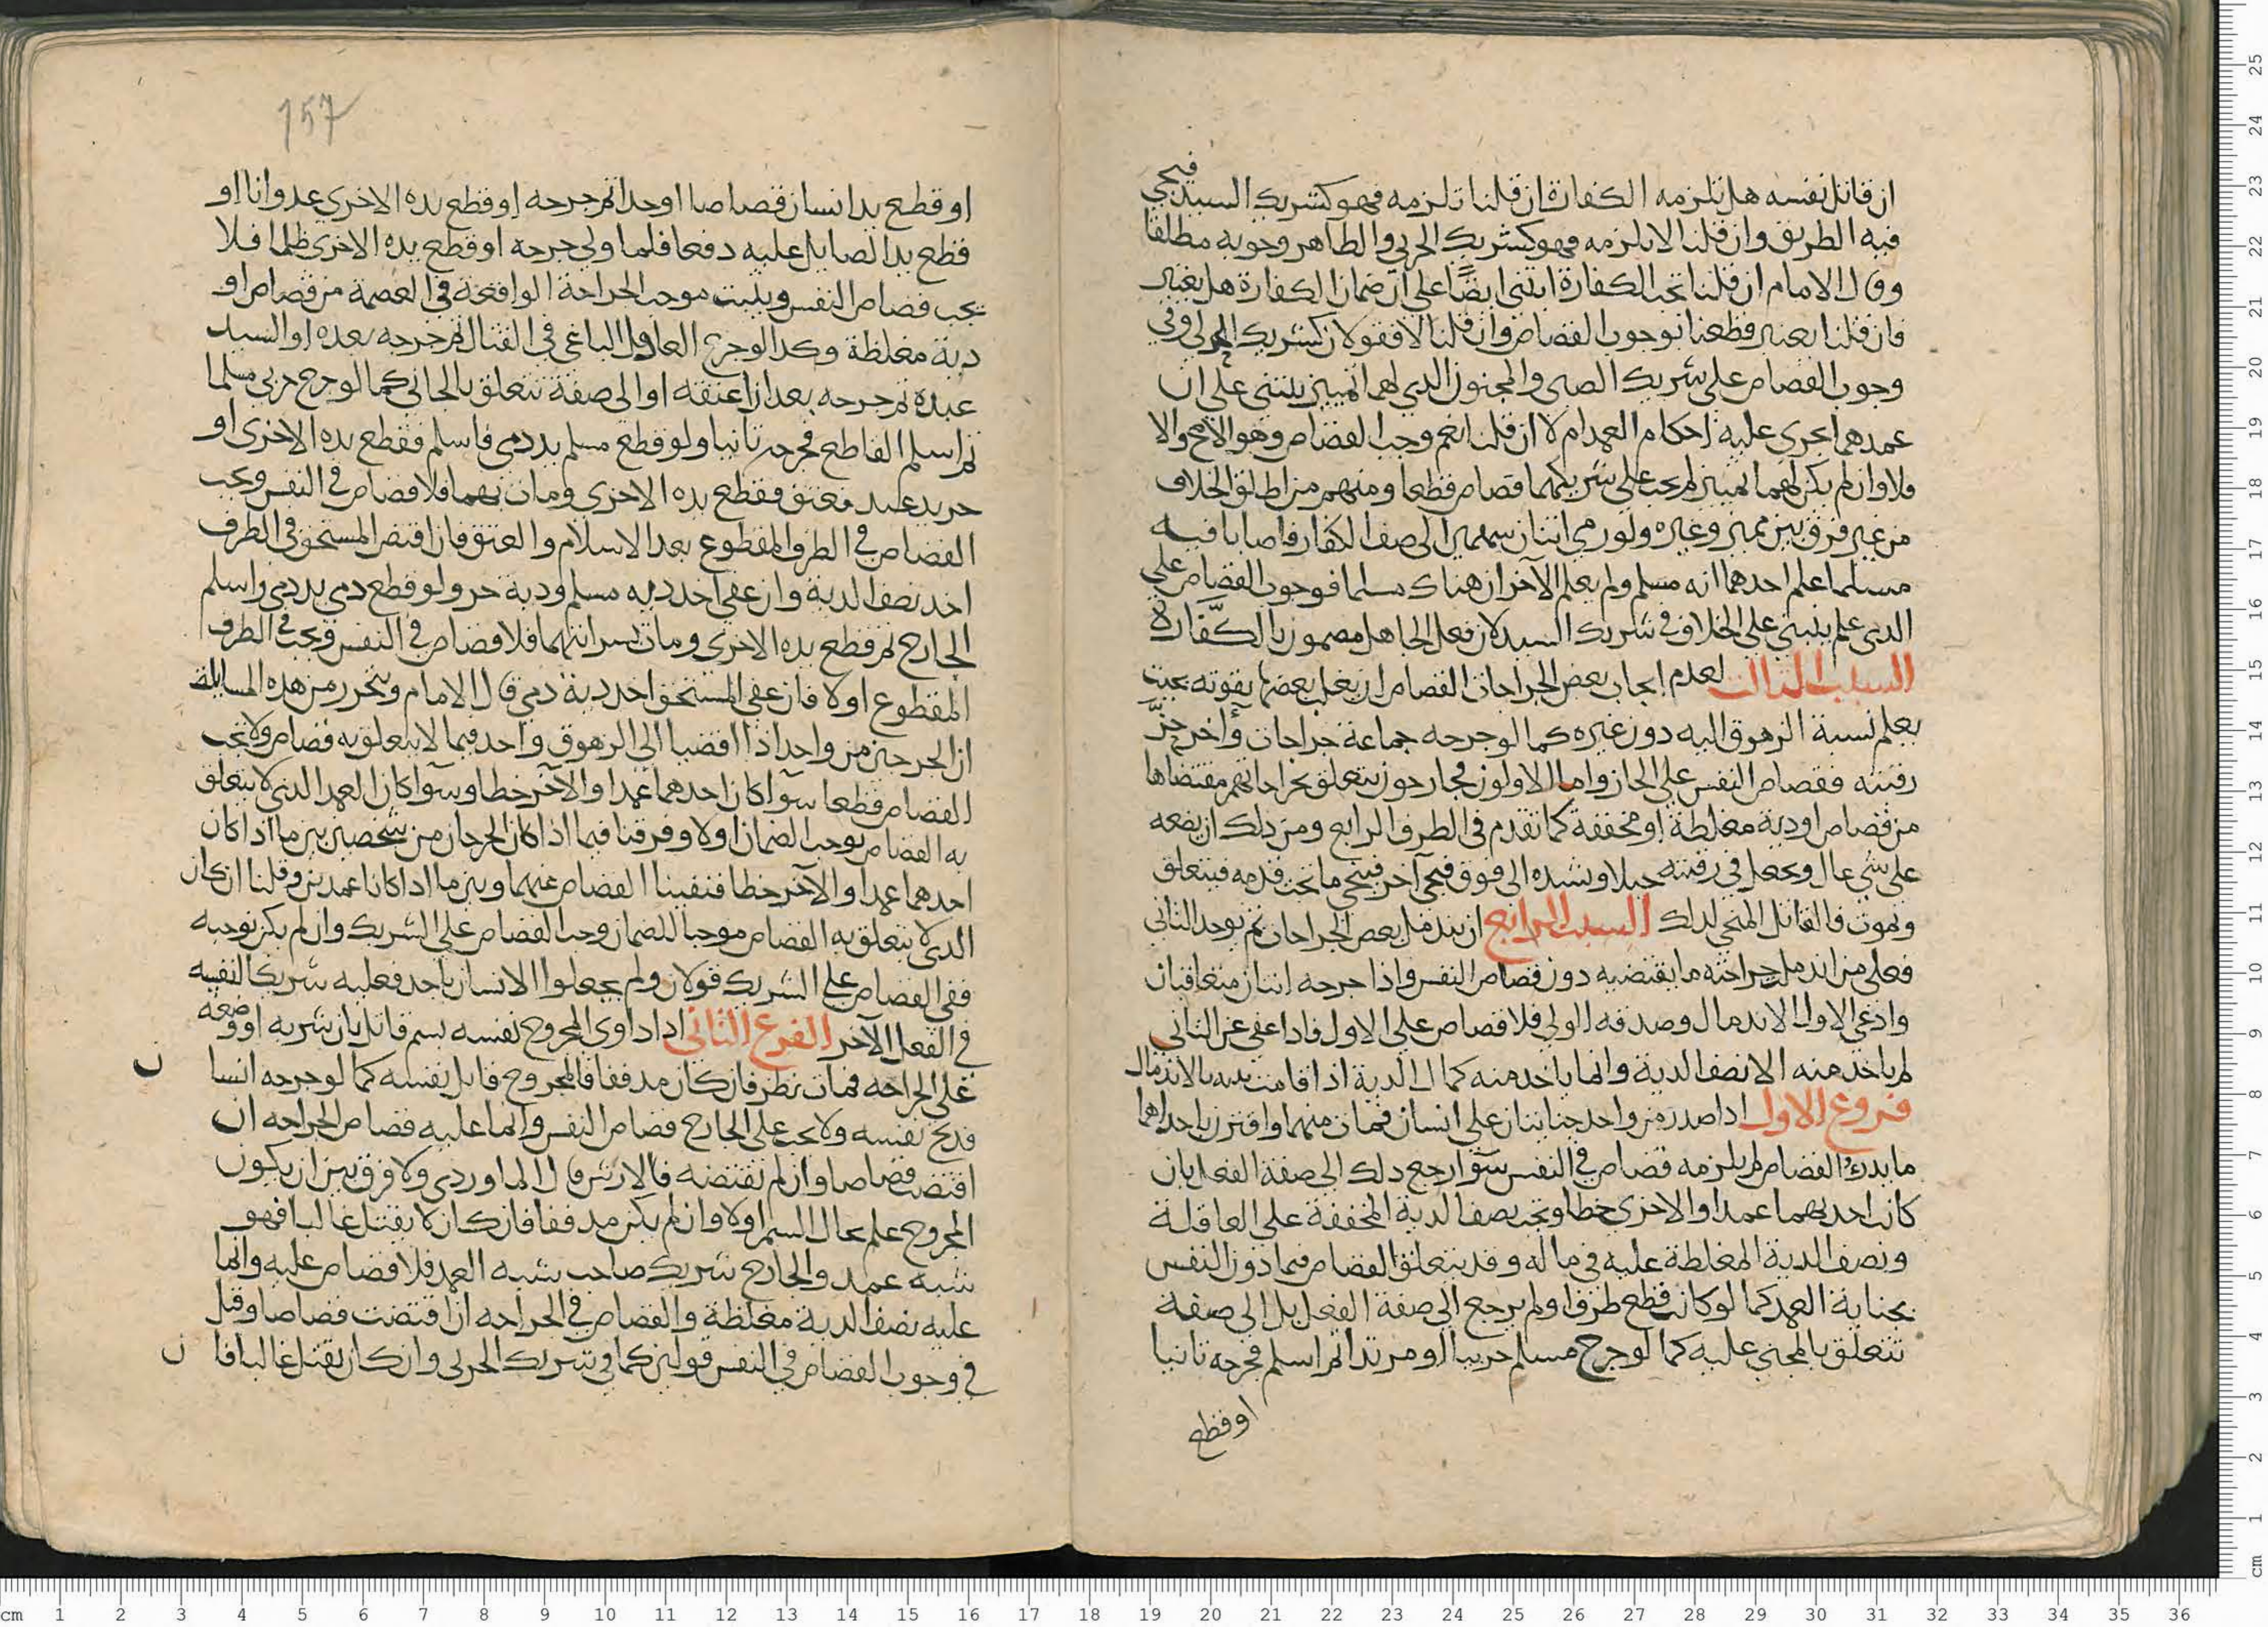 ان قاتل نفسه هل تلزمه الكفارة ان قلنا تلزمه فهو كشريك السيد فيجي
فيه الطريق وان قلنا لا تلزمه فهو كشريك الحربي والظاهر وجوبه مطلقا
وقال الامام ان قلنا تجب الكفارة ابتنى ايضًا على ان ضمان الكفارة هل يعتبر
فان قلنا يعتبر قطعنا بوجوب القصاص وان قلنا لا فقولان كشريك الحربي وفي
وجوب القصاص على شريك الصبي والمجنون الذي لهما تمييز يبتنى على ان
عمدهما يجري عليه احكام العمد ام لا ان قلنا نعم وجب القصاص وهو الاصح والا
فلا وان لم يكن لهما تمييز لم يجب على شريكهما قصاص قطعا ومنهم من اطلق الخلاف
من غير فرق بين مميز وغيره ولو رمى اثنان سهمين الى صف الكفار فاصابا فيه
مسلما علم احدهما انه مسلم ولم يعلم الآخر ان هناك مسلما فوجوب القصاص على
الذي علم يبتنى على الخلاف في شريك السيد لان فعل الجاهل مضمون بالكفّارة
السبب الثالث لعدم ايجاب بعض الجراحات القصاص ان يغلب بعضها بقوته بحيث
يعلم نسبة الزهوق اليه دون غيره كما لو جرحه جماعة جراحات وآخر حزّ
رقبته فقصاص النفس على الحاز واما الاولون فجارحون يتعلق بجراحاتهم مقتضاها
من قصاص او دية مغلظة او مخففة كما تقدم في الطرف الرابع ومن ذلك ان يضعه
على شي عال ويجعل في رقبته حبلا ويشده الى فوق فيجي آخر فينحي ما تحت قدمه فيتعلق
ويموت فالقاتل المنحي لذلك السبب الرابع ان يندمل بعض الجراحات ثم يوجد الثاني
فعلى من اندمل جراحته ما يقتضيه دون قصاص النفس واذا جرحه اثنان متعاقبان
وادعى الاول الاندمال وصدقه الولي فلا قصاص على الاول فاذا عفى عن الثاني
لم ياخذ منه الا نصف الدية وانما ياخذ منه كمال الدية اذا قامت بينه بالاندمال
فروع الاول اذا صدر من واحد جنايتان على انسان فمات منهما واقترن باحداهما
ما يدرك القصاص لم يلزمه قصاص في النفس سوآ رجع ذلك الى صفة الفعل بان
كانت احديهما عمدا والاخرى خطا وتجب نصف الدية المخففة على العاقلة
ونصف الدية المغلظة عليه في ماله وقد يتعلق القصاص فيما دون النفس
بجناية العمد كما لو كانت قطع طرف او لم يرجع الى صفة الفعل بل الى صفة
تتعلق بالمجني عليه كما لو جرح مسلم حربيا او مرتدا ثم اسلم فجرحه ثانيا
او قطع
157
او قطع يد انسان قصاصا او حدا ثم جرحه او قطع يده الاخرى عدوانا او
قطع يد الصايل عليه دفعا فلما ولى جرحه او قطع يده الاخرى ظلما فلا
يجب قصاص النفس ويثبت موجب الجراحة الواقعة في العصمة من قصاص او
دية مغلظة وكذا لو جرح العادل الباغي في القتال ثم جرحه بعده او السيد
عبده ثم جرحه بعد ان اعتقه او الى صفة تتعلق بالجاني كما لو جرح حربي مسلما
ثم اسلم القاطع فجرحه ثانيا ولو قطع مسلم يد ذمي فاسلم فقطع يده الاخرى او
حر يد عبد فعتق فقطع يده الاخرى ومات بهما فلا قصاص في النفس ويجب
القصاص في الطرف المقطوع بعد الاسلام والعتق فان اقتص المستحق في الطرف
اخذ نصف الدية وان عفى اخذ دية مسلم ودية حر ولو قطع ذمي يد ذمي واسلم
الجارح ثم قطع يده الاخرى ومات بسرايتهما فلا قصاص في النفس ويجب في الطرف
المقطوع اولا فان عفى المستحق اخذ دية ذمي قال الامام ويتحرر من هذه المسايلة
ان الجرحين من واحد اذا افضيا الى الزهوق واحدهما لا يتعلق به قصاص ولا يجب
القصاص قطعا سوآ كان احدهما عمدا والآخر خطا وسوآ كان العمد الذي لا يتعلق
به القصاص يوجب الضمان او لا وفرقنا فيما اذا كان الجرحان من شخصين بين ما اذا كان
احدهما عمدا والآخر خطا فنفينا القصاص عنهما وبين ما اذا كانا عمدين وقلنا ان كان
الذي لا يتعلق به القصاص موجبا للضمان وجب القصاص على الشريك وان لم يكن يوجبه
ففي القصاص على الشريك قولان ولم يجعلوا الانسان باحد فعليه شريكا لنفسه
في الفعل الآخر الفرع الثاني اذا داوى المجروح نفسه بسم قاتل بان شربه او وضعه
على الجراحه فمات نظر فان كان مدففا فالمجروح قاتل نفسه كما لو جرحه انسا ن
فذبح نفسه ولا يجب على الجارح قصاص النفس وانما عليه قصاص الجراحه ان
اقتضت قصاصا وان لم تقتضه فالارش قال الماوردي ولا فرق بين ان يكون
المجروح علم بحال السم او لا وان لم يكن مدففا فان كان لا يقتل غالبا فهو
شبه عمد والجارح شريك صاحب شبه العمد فلا قصاص عليه وانما
عليه نصف الدية مغلظة والقصاص في الجراحه ان اقتضت قصاصا وقيل
في وجوب القصاص في النفس قولين كما في شريك الحربي وان كان يقتل غالبا فا ن